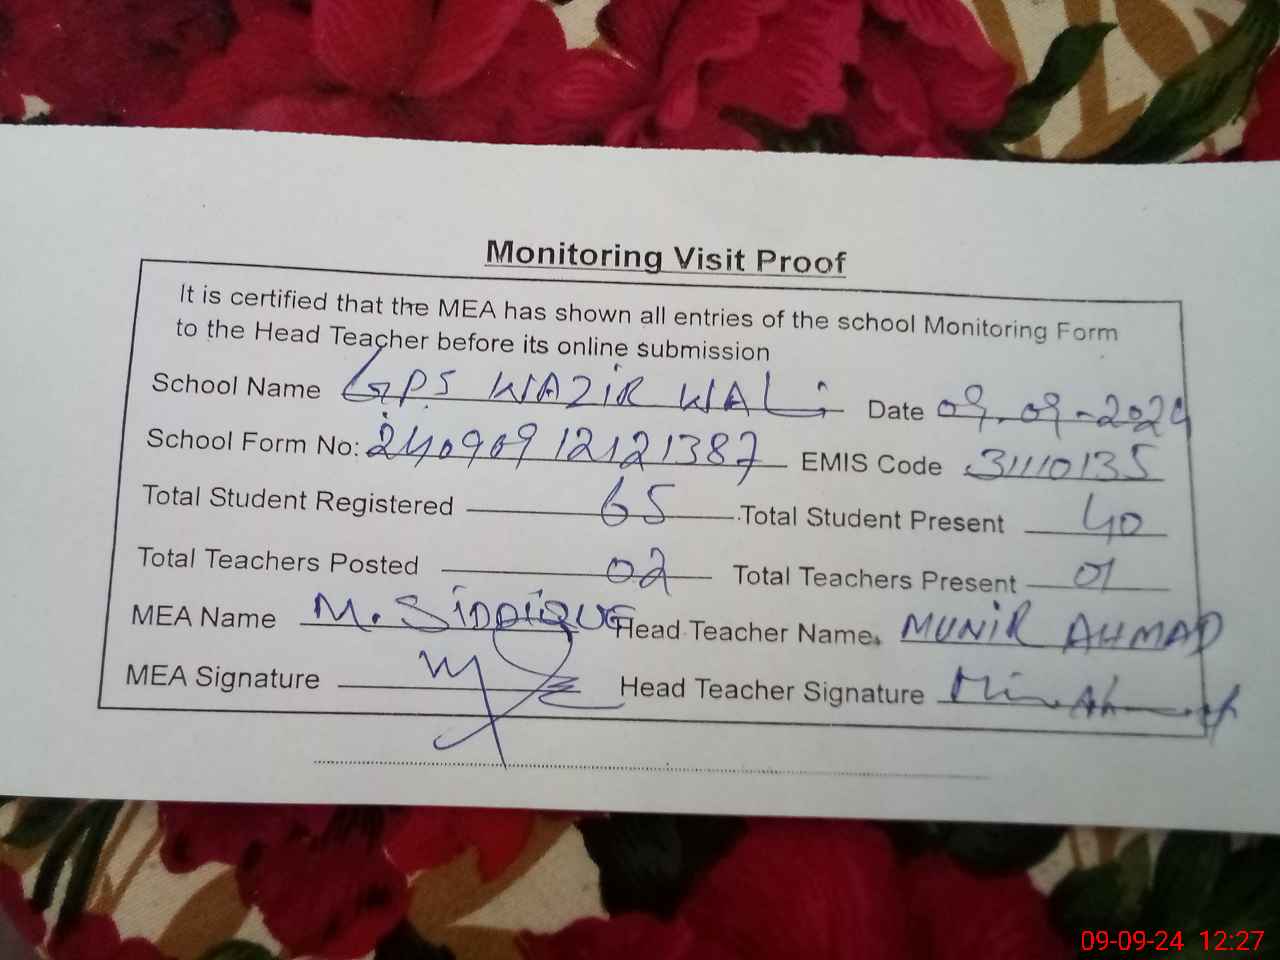 Monitoring Visit Proof
It is certified that the MEA has shown all entries of the school Monitoring Form
to the Head Teacher before its online submission
School Name GPS WAZIR WALi Date 09.09-2024
School Form No: 24090912121387 EMIS Code 31110135
Total Student Registered 65 Total Student Present 40
Total Teachers Posted 02 Total Teachers Present 01
MEA Name M. SIDDIQUE Head Teacher Name MUNIR AHMAD
MEA Signature Head Teacher Signature
09-09-24 12:27